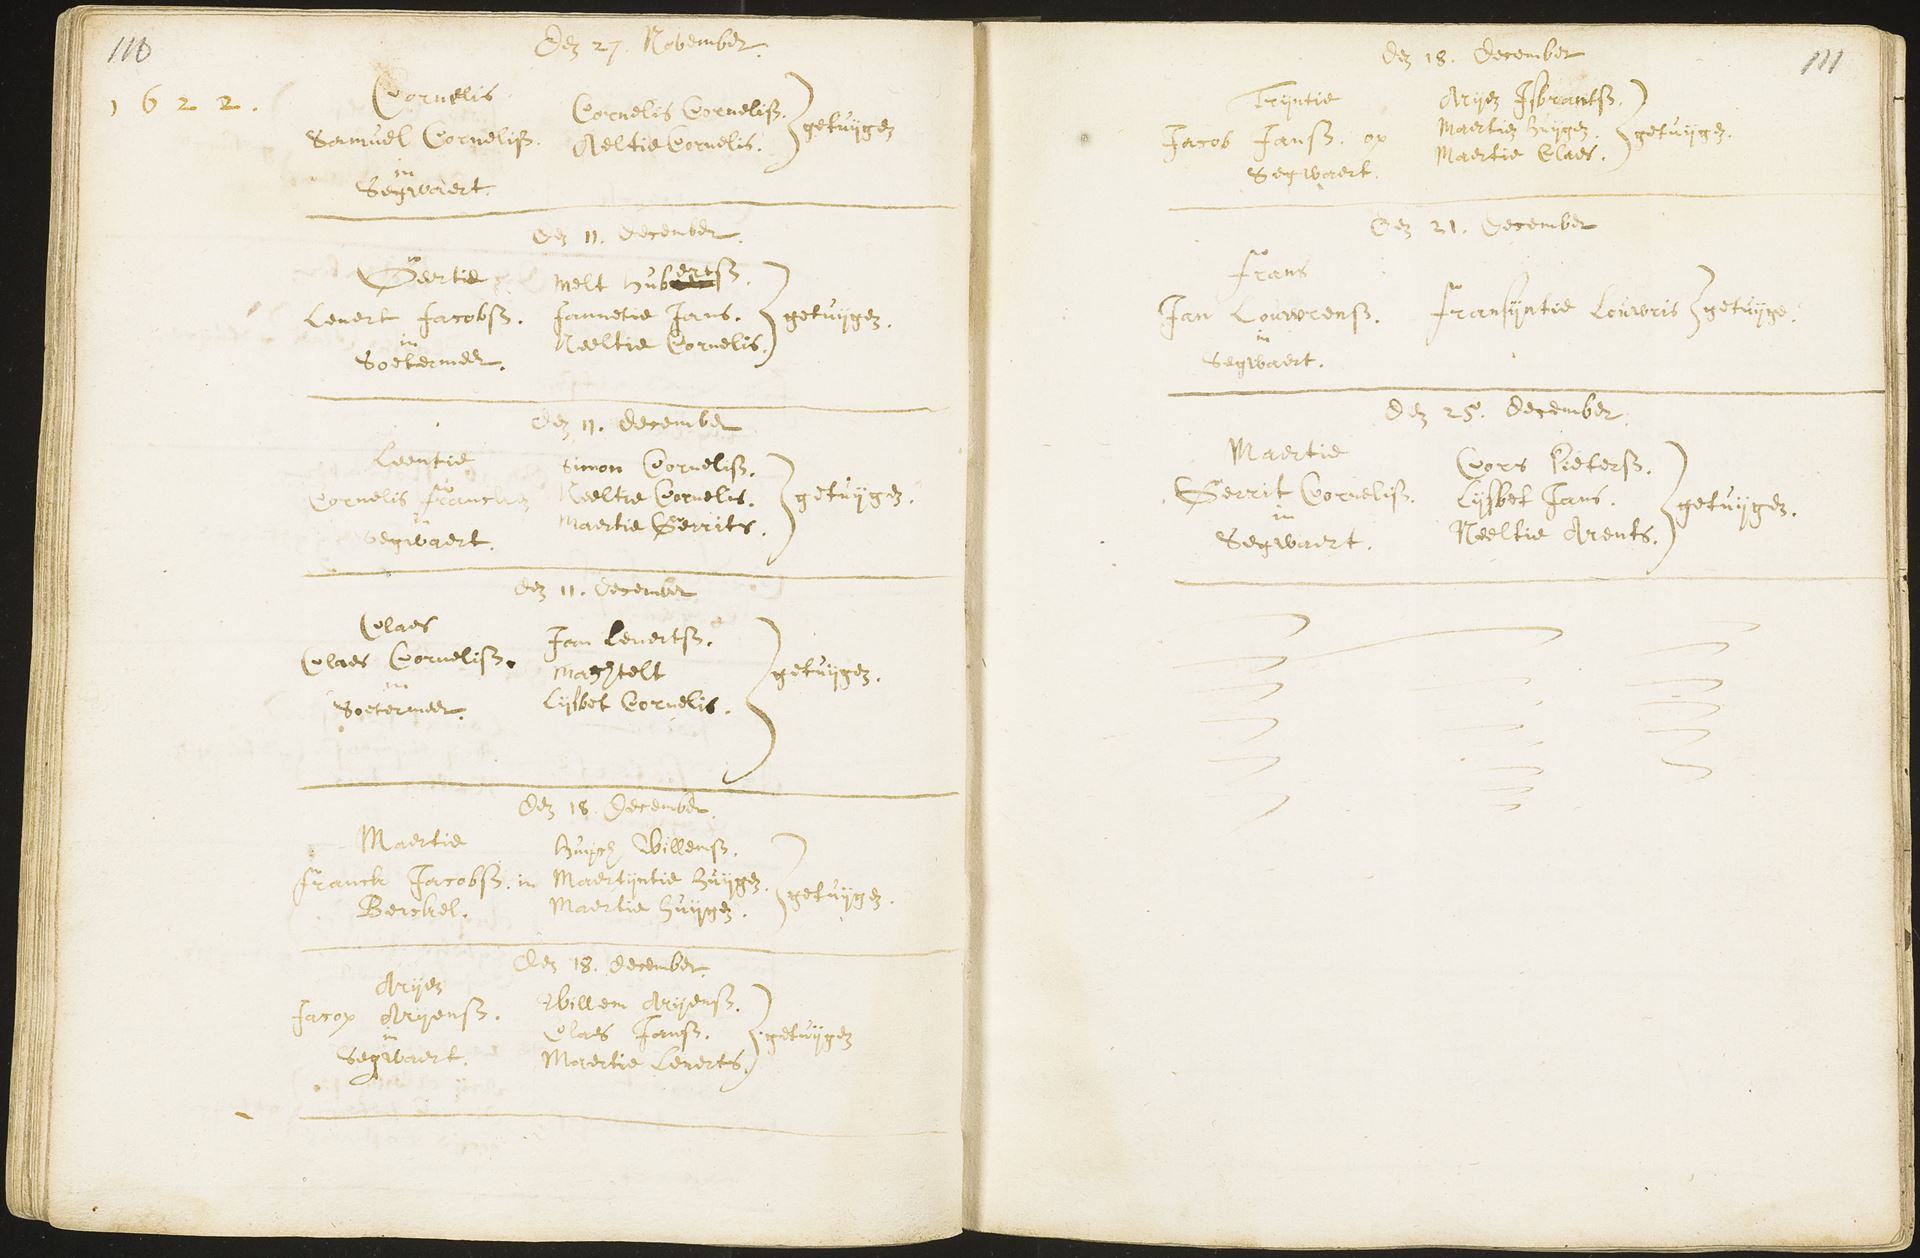 110
Den 27. November.
1622.
Cornelis
Samuel Cornelisz.
in
Segwaert.
Cornelis Cornelisz.
Aeltie Cornelis.
getuijgen
Den 11. December.
Geertie
Lenert Jacobsz.
in
Soetermeer.
Melt Hubertsz.
Jannetie Jans.
Neeltie Cornelis.
getuijgen.
Den 11. December
Leentie
Cornelis Francken
in
Segwaert.
Simon Cornelisz.
Neeltie Cornelis.
Maertie Gerrits.
getuijgen.
Den 11. December
Claes
Claes Cornelisz.
in
Soetermeer.
Jan Lenertsz.
Machtelt
Lijsbet Cornelis.
getuijgen.
Den 18. December.
Maertie
Franck Jacobsz. in
Berckel.
Huijch Willemsz.
Maertijntie Huijgen.
Maertie Huijgen.
getuijgen.
Den 18. December.
Arijen
Jacop Arijensz.
in
Segwaert.
Willem Arijensz.
Claes Jansz.
Maertie Lenerts.
getuijgen
111
Den 18. December
Trijntie
Jacob Jansz. op
Segwaert.
Arijen Isbrantsz.
Maertie Huijgen.
Maertie Claes.
getuijgen.
Den 21. December
Frans
Jan Louwrensz.
in
Segwaert.
Fransijntie Louwris
getuijge.
Den 25. December.
Maertie
Gerrit Cornelisz.
in
Segwaert.
Cors Pietersz.
Lijsbet Jans.
Neeltie Arents.
getuijgen.